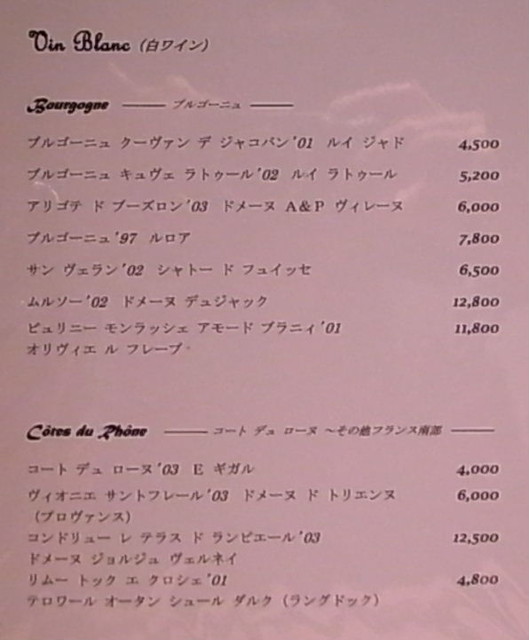 Vin Blanc (白ワイン)
Bourgogne ブルゴーニュ
ブルゴーニュ クーヴァン デ ジャコバン'01 ルイ ジャド 4,500
ブルゴーニュ キュヴェ ラトゥール'02 ルイ ラトゥール 5,200
アリゴテ ド ブーズロン'03 ドメーヌ A&P ヴィレーヌ 6,000
ブルゴーニュ'97 ルロア 7,800
サン ヴェラン'02 シャトー ド フュイッセ 6,500
ムルソー'02 ドメーヌ デュジャック 12,800
ピュリニー モンラッシェ アモード ブラニィ'01 11,800
オリヴィエ ル フレーブ
Côtes du Rhône コート デュ ローヌ ～その他フランス南部
コート デュ ローヌ'03 E ギガル 4,000
ヴィオニエ サントフレール'03 ドメーヌ ド トリエンヌ 6,000
(プロヴァンス)
コンドリュー レ テラス ド ランピエール'03 12,500
ドメーヌ ジョルジュ ヴェルネイ
リムー トック エ クロシェ'01 4,800
テロワール オータン シュール ダルク (ラングドック)